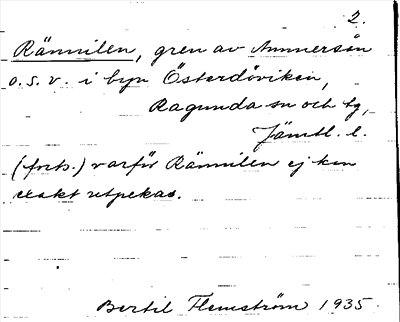 2.
Rännilen, gren av Ammerån
o.s.v. i byn Österdöviken,
Ragunda sn och tg,
Jämtl. l.
(forts.) varför Rännilen ej kan
exakt utpekas.
Bertil Flemström 1935.